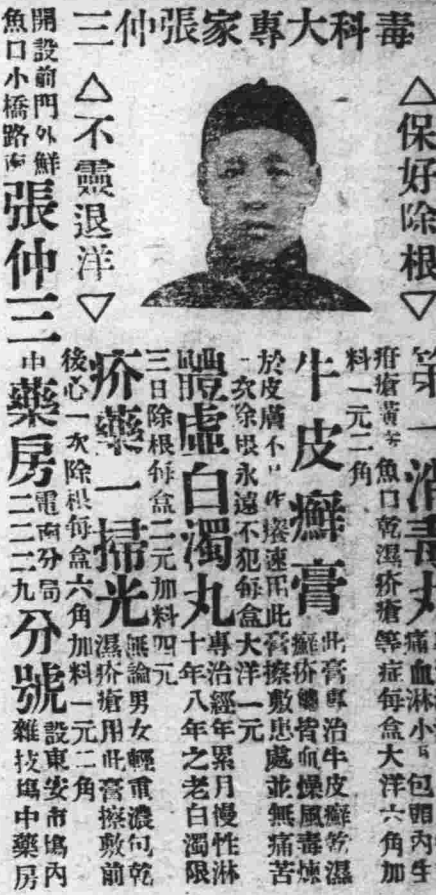 毒科大專家張仲三
△保好除根▽
△不靈退洋▽
第一消毒丸
痛血淋小
包管內生
疳瘡黃
魚口乾濕疥瘡等症每盒大洋六角加
料一元二角
牛皮癬膏
此膏專治牛皮癬乾濕
癬疥癩皆血燥風毒
於皮膚不
速用此膏擦敷患處並無痛苦
一次除根永遠不犯每盒大洋一元
體虛白濁丸
專治經年累月慢性淋
十年八年之老白濁限
三日除根每盒二元加料四元
疥藥一掃光
無論男女輕重濃包乾
濕疥瘡用此膏擦敷前
後心一次除根每盒六角加料一元二角
開設前門外鮮
魚口小橋路南
張仲三中藥房
電南分局
二二二九
分號
設東安市場內
雜技場中藥房